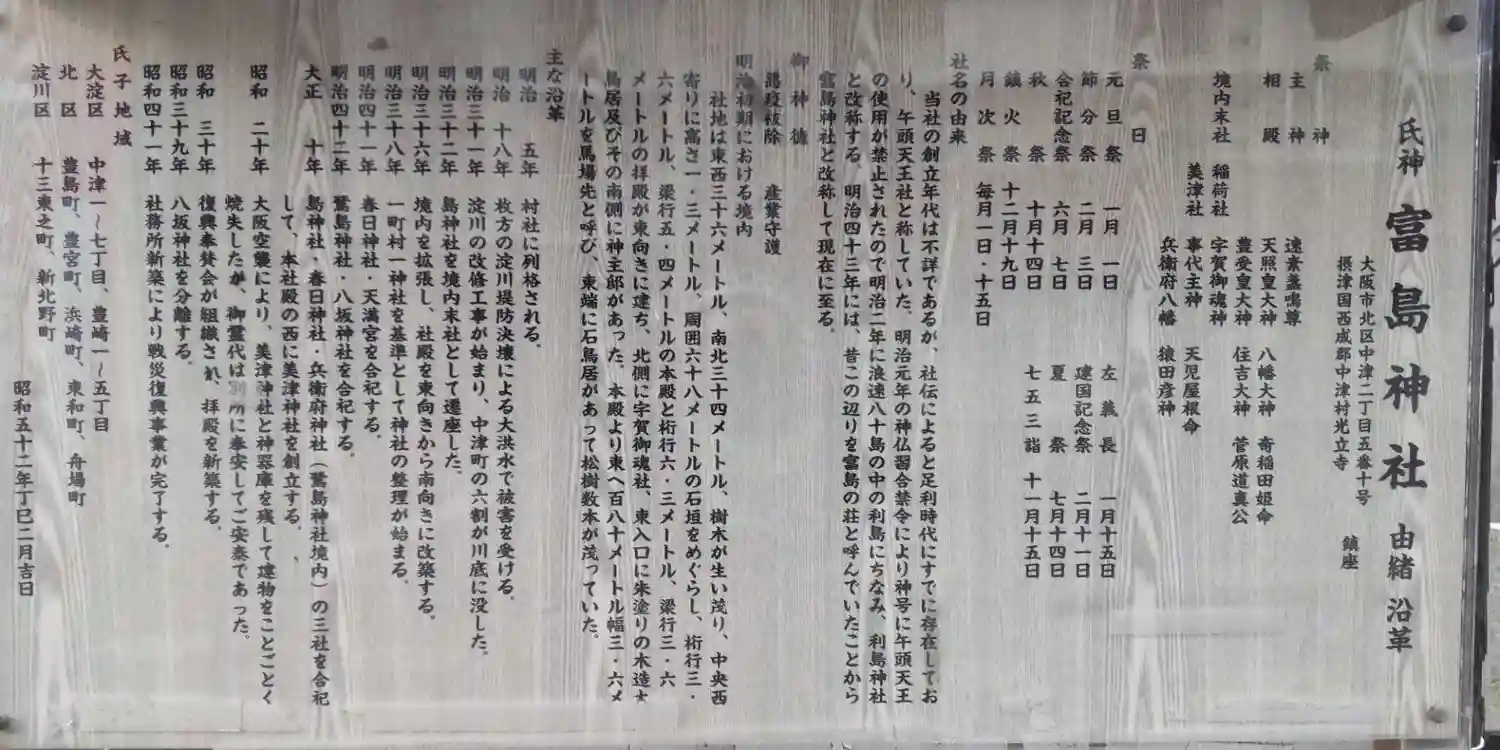 氏神 富島神社 由緒 沿革
大阪市北区中津二丁目五番十号
摂津国西成郡中津村光立寺 鎮座
祭神
主神 速素盞鳴尊
相殿 天照皇大神 八幡大神 奇稲田姫命
豊受皇大神 住吉大神 菅原道真公
境内末社 稲荷社 宇賀御魂神
美津社 事代主神 天児屋根命
兵衛府八幡 猿田彦神
祭日
元旦祭 一月一日 左義長 一月十五日
節分祭 二月三日 建国記念祭 二月十一日
合祀記念祭 六月七日 夏祭 七月十四日
秋祭 十月十四日 七五三詣 十一月十五日
鎮火祭 十二月十九日
月次祭 毎月一日・十五日
社名の由来
当社の創立年代は不詳であるが、社伝によると足利時代にすでに存在してお
り、午頭天王社と称していた。明治元年の神仏習合禁令により神号に午頭天王
の使用が禁止されたので明治二年に浪速八十島の中の利島にちなみ、利島神社
と改称する。明治四十三年には、昔この辺りを富島の荘と呼んでいたことから
富島神社と改称して現在に至る。
御神徳
悪疫祓除 産業守護
明治初期における境内
社地は東西三十六メートル、南北三十四メートル、樹木が生い茂り、中央西
寄りに高さ一・三メートル、周囲六十八メートルの石垣をめぐらし、桁行三・
六メートル、梁行五・四メートルの本殿と桁行六・三メートル、梁行三・六
メートルの拝殿が東向きに建ち、北側に宇賀御魂社、東入口に朱塗りの木造大
鳥居及びその南側に神主邸があった。本殿より東へ百八十メートル幅三・六メ
ートルを馬場先と呼び、東端に石鳥居があって松樹数本が茂っていた。
主な沿革
明治 五年 村社に列格される。
明治 十八年 枚方の淀川堤防決壊による大洪水で被害を受ける。
明治三十一年 淀川の改修工事が始まり、中津町の六割が川底に没した。
明治三十二年 島神社を境内末社として遷座した。
明治三十六年 境内を拡張し、社殿を東向きから南向きに改築する。
明治三十八年 一町村一神社を基準として神社の整理が始まる。
明治四十一年 春日神社・天満宮を合祀する。
明治四十二年 鷺島神社・八坂神社を合祀する。
大正 十年 島神社・春日神社・兵衛府神社（鷺島神社境内）の三社を合祀
して、本社殿の西に美津神社を創立する。
昭和 二十年 大阪空襲により、美津神社と神器庫を残して建物をことごとく
焼失したが、御霊代は別所に奉安してご安泰であった。
昭和 三十年 復興奉賛会が組織され、拝殿を新築する。
昭和三十九年 八坂神社を分離する。
昭和四十一年 社務所新築により戦災復興事業が完了する。
氏子地域
大淀区 中津一～七丁目、豊崎一～五丁目
北区 豊島町、豊宮町、浜崎町、東和町、舟場町
淀川区 十三東之町、新北野町
昭和五十二年丁巳二月吉日